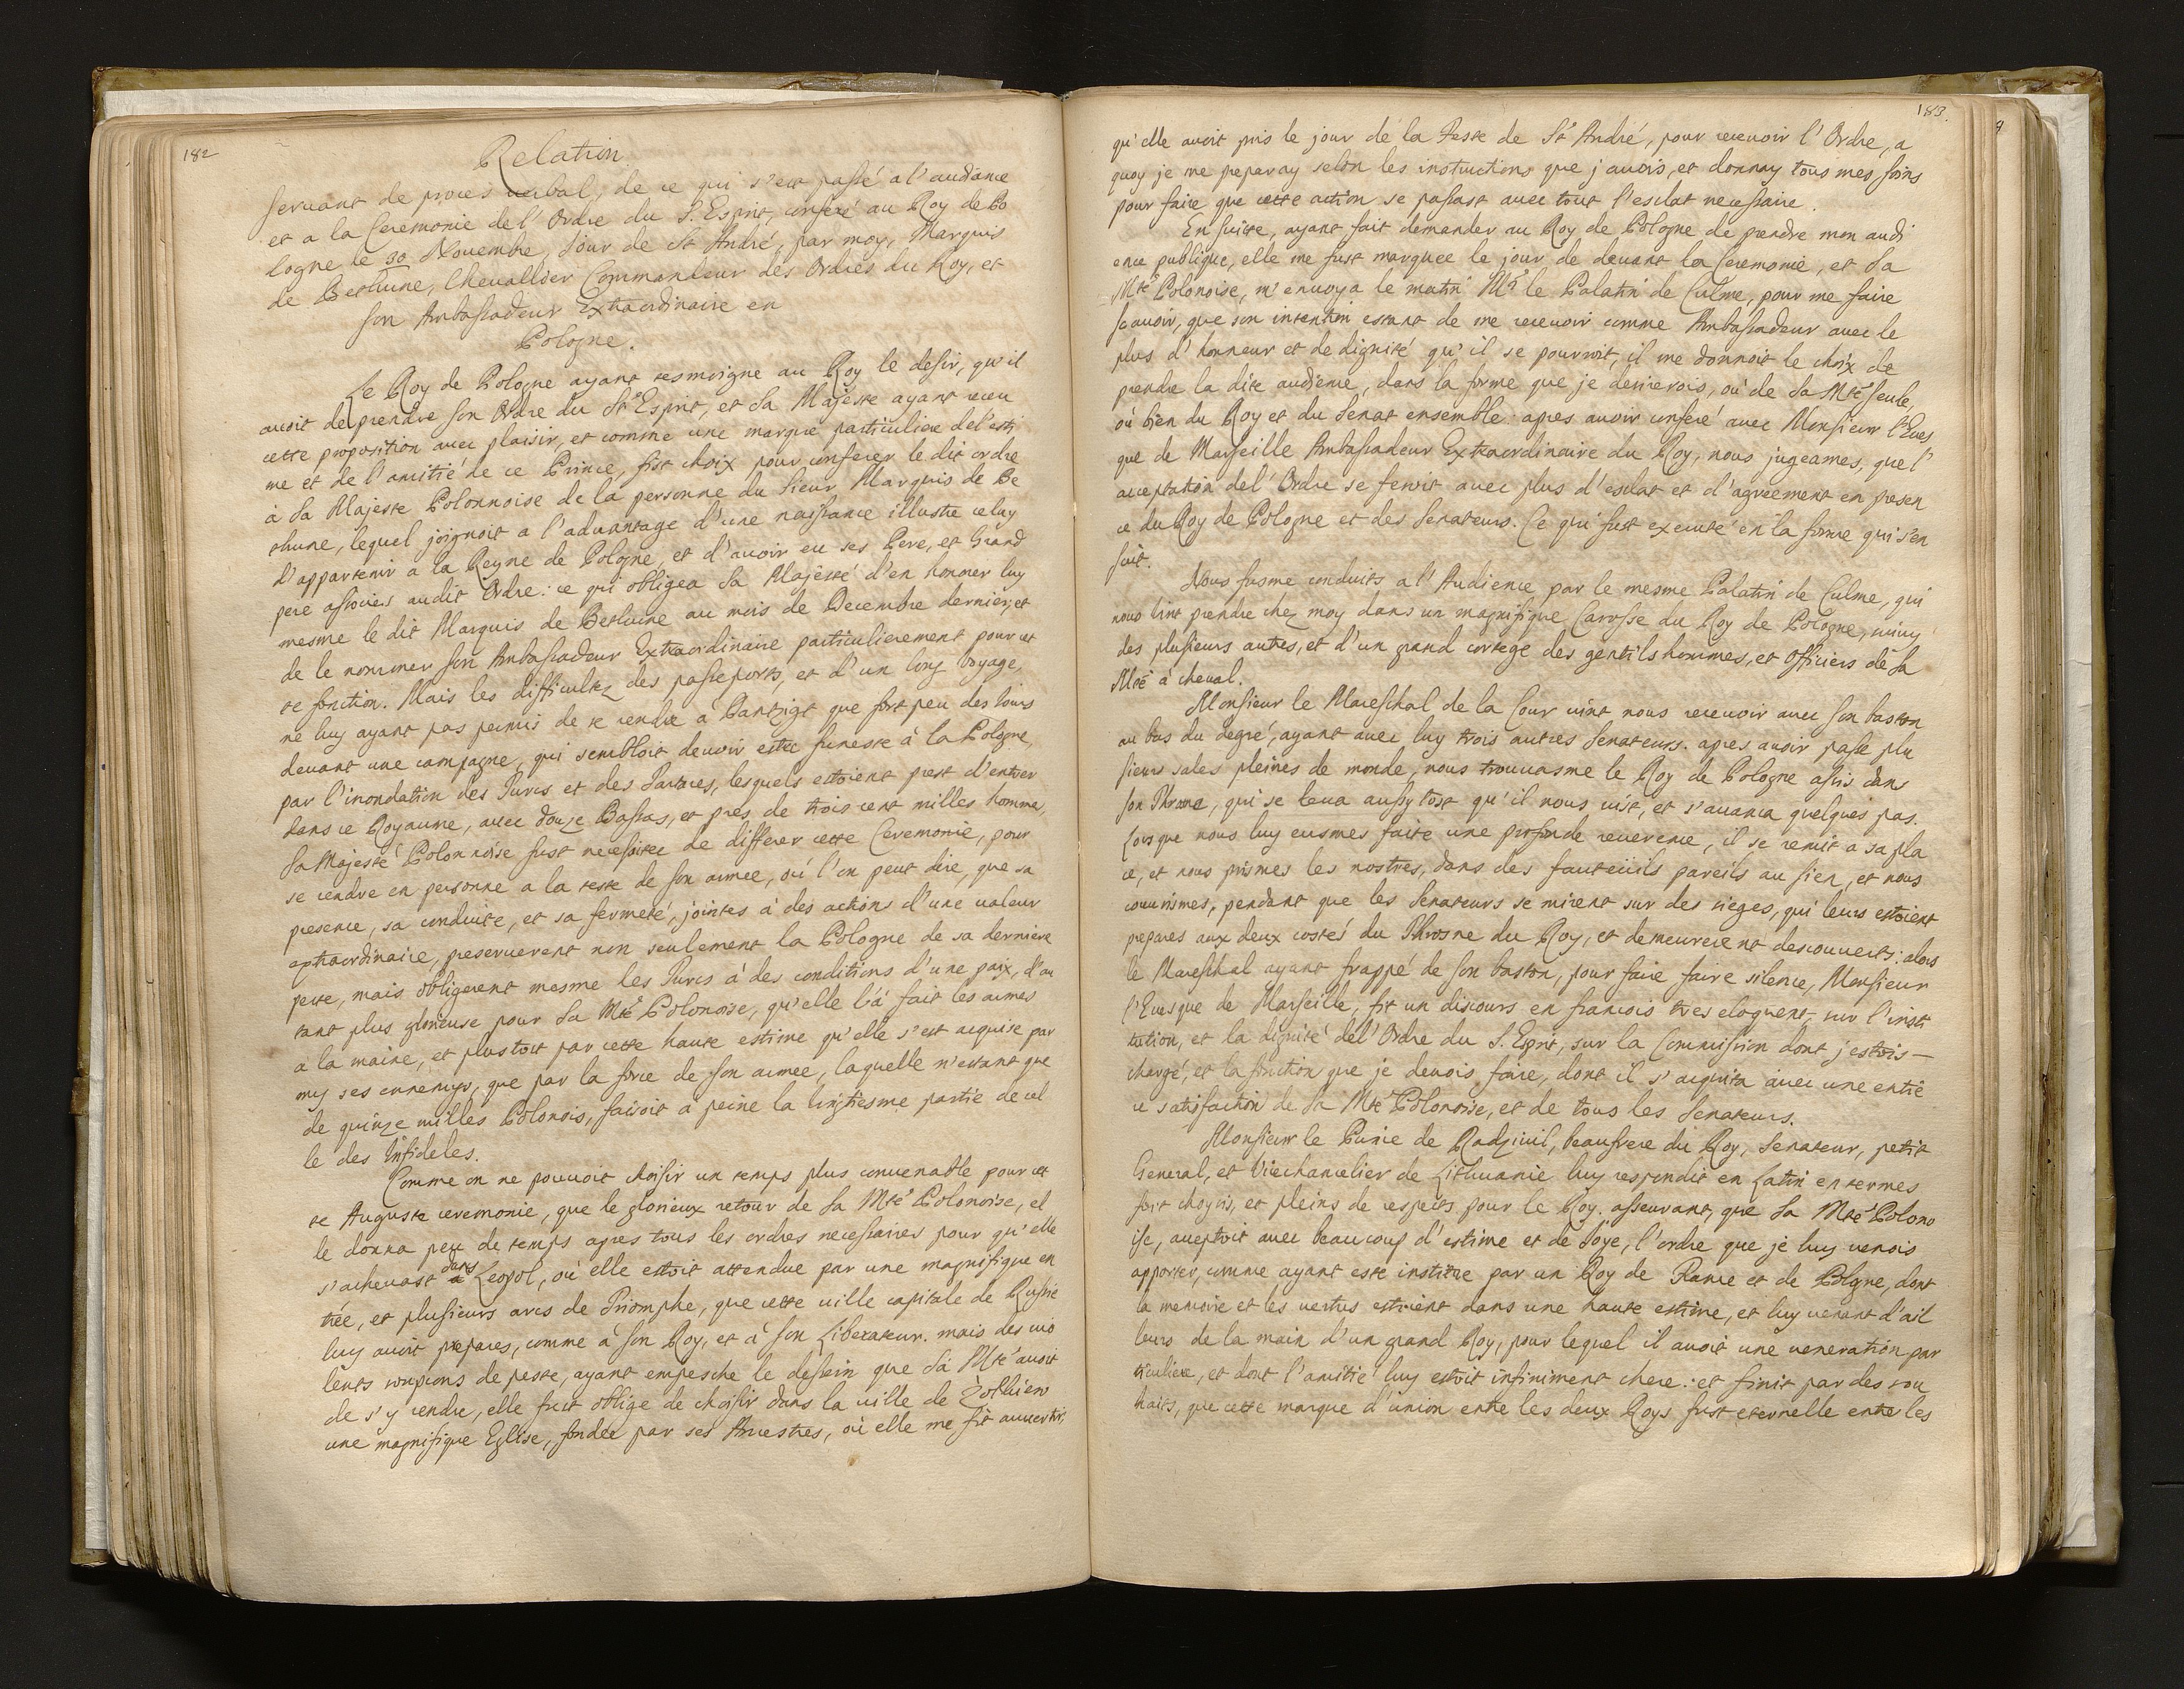 182
Relation
servant de proces verbal, de ce qui s'est passé a l'audiance
et a la Ceremonie de l'Ordre du S. Esprit, conferé au Roy de Po
logne le 30 Novembre, Jour de St André, par moy, Marquis
de Bethune, Chevallier Commandeur des Ordres du Roy, et
son Ambassadeur Extraordinaire en
Pologne.
Le Roy de Pologne ayant tesmoigne au Roy le desir, qu'il
avoit de prendre son Ordre du St Esprit, et Sa Majeste ayant receu
cette proposition avec plaisir, et comme une marque particuliere de l'esti
me et de l'amitié de ce Prince, fist choix pour conferer le dit ordre
à Sa Majeste Polonnoise de la personne du Sieur Marquis de Be
thune, lequel joignoit a l'advantage d'une naissance illustre celuy
d'appartenir a la Reyne de Pologne, et d'avoir eu ses Pere, et Grand
pere associes audit Ordre: ce qui obligea Sa Majesté d'en honorer luy
mesme le dit Marquis de Bethune au mois de Decembre dernier, et
de le nommer son Ambassadeur Extraordinaire particulierement pour cet
te fonction. Mais les difficultez des passeports, et d'un long voyage,
ne luy ayant pas permis de se rendre à Dantzigt que fort peu des Jours
devant une campagne, qui sembloit devoir estre funeste à la Pologne,
par l'inondation des Turcs et des Tartares, lesquels estoient prest d'entrer
dans ce Royaume, avec douze Bassas, et pres de trois cent milles homme,
Sa Majesté Polonnoise fust necessitee de differer cette Ceremonie, pour
se rendre en personne a la teste de son armee, où l'on peut dire, que sa
presence, sa conduite, et sa fermeté, jointes à des actions d'une valeur
extraordinaire, preserverent non seulement la Pologne de sa derniere
perte, mais obligerent mesme les Turcs à des conditions d'une paix, d'au
tant plus glorieuse pour Sa Mté Polonoise, qu'elle l'à fait les armes
a la maine, et plustost par cette haute estime qu'elle s'est acquise par
my ses ennemys, que par la force de son armee, laquelle n'estant que
de quinze milles Polonois, faisoit à peine la vingtiesme partie de cel
le des Infideles.
Comme on ne pouvoit choisir un temps plus convenable pour cet
te Auguste ceremonie, que le glorieux retour de Sa Mté Polonoise, el
le donna peu de temps apres tous les ordres necessaires pour qu'elle
s'achevast dans Leopol, où elle estoit attendue par une magnifique en
trée, et plusieurs arcs de Triomphe, que cette ville capitale de Russie
luy avoit prepares, comme à son Roy, et à son Liberateur. mais des vio
lents soupcons de peste, ayant empesche le dessein que Sa Mté avoit
de s'y rendre, elle fust oblige de choisir dans la ville de Zolkiew
une magnifique Eglise, fondée par ses Ancestres, où elle me fit avvertir,
183.
qu'elle avoit pris le jour de la Feste de St André, pour recevoir l'Ordre, a
quoy je me preparay selon les instructions que j'avois, et donnay tous mes soins
pour faire que cette action se passast avec tout l'esclat necessaire.
En suitte, ayant fait demander au Roy de Pologne de prendre mon audi
ence publique, elle me fust marquee le jour de devant la Ceremonie, et Sa
Mté Polonoise, m'envoya le matin Mr le Palatin de Culme, pour me faire
scavoir, que son intention estant de me recevoir comme Ambassadeur avec le
plus d'honneur et de dignité qu'il se pourroit, il me donnoit le choix de
prendre la dite audience, dans la forme que je desirerois, où de Sa Mté seule,
où bien du Roy et du Senat ensemble: apres avoir conferé avec Monsieur l'Eves
que de Marseille Ambassadeur Extraordinaire du Roy, nous jugeames, que l'
acceptation del'Ordre se feroit avec plus d'esclat et d'agreement en presen
ce du Roy de Pologne et des Senateurs. Ce qui fust executé en la forme qui s'en
suit.
Nous fusme conduits a l'Audience par le mesme Palatin de Culme, qui
nous vint prendre chez moy dans un magnifique Carosse du Roy de Pologne, suivy
des plusieurs autres, et d'un grand cortege des gentilshommes, et Officiers de Sa
Mté à cheval.
Monsieur le Mareschal de la Cour vint nous recevoir avec son baston
au bas du degré, ayant avec luy trois autres Senateurs. apres avoir passe plu
sieurs sales pleines de monde, nous trouvasme le Roy de Pologne assis dans
son Throsne, qui se leva aussytost qu'il nous vist, et s'avanca quelques pas.
Lorsque nous luy eusmes faite une profonde reverence, il se remit a sa pla
ce, et nous prismes les nostres, dans des fauteüils pareils au sien, et nous
couvrismes, pendant que les Senateurs se mirent sur des sieges, qui leurs estoient
prepares aux deux costés du Throsne du Roy, et demeurerent descouverts: alors
le Mareschal ayant frappé de son baston, pour faire faire silence, Monsieur
l'Evesque de Marseille, fit un discours en francois tres eloquent, sur l'insti
tution, et la dignité del'Ordre du S. Esprit, sur la Commission dont j'estois
chargé, et la fonction que je devois faire, dont il s'acquita avec une entie
re satisfaction de Sa Mté Polonoise, et de tous les Senateurs.
Monsieur le Prince de Radzivil, beaufrere du Roy, Senateur, petit
General, et Vicechancelier de Lithuanie luy respondit en Latin en termes
fort choysis, et pleins de respects pour le Roy. asseurant, que Sa Mté Polono
ise, acceptoit avec beaucoup d'estime et de Joye, l'ordre que je luy venois
apporter, comme ayant este institue par un Roy de France et de Pologne, dont
la memoire et les vertus estoient dans une haute estime, et luy venant d'ail
leurs de la main d'un grand Roy, pour lequel il avoit une veneration par
ticuliere, et dont l'amitié luy estoit infiniment chere: et finit par des sou
haits, que cette marque d'union entre les deux Roys fust eternelle entre les